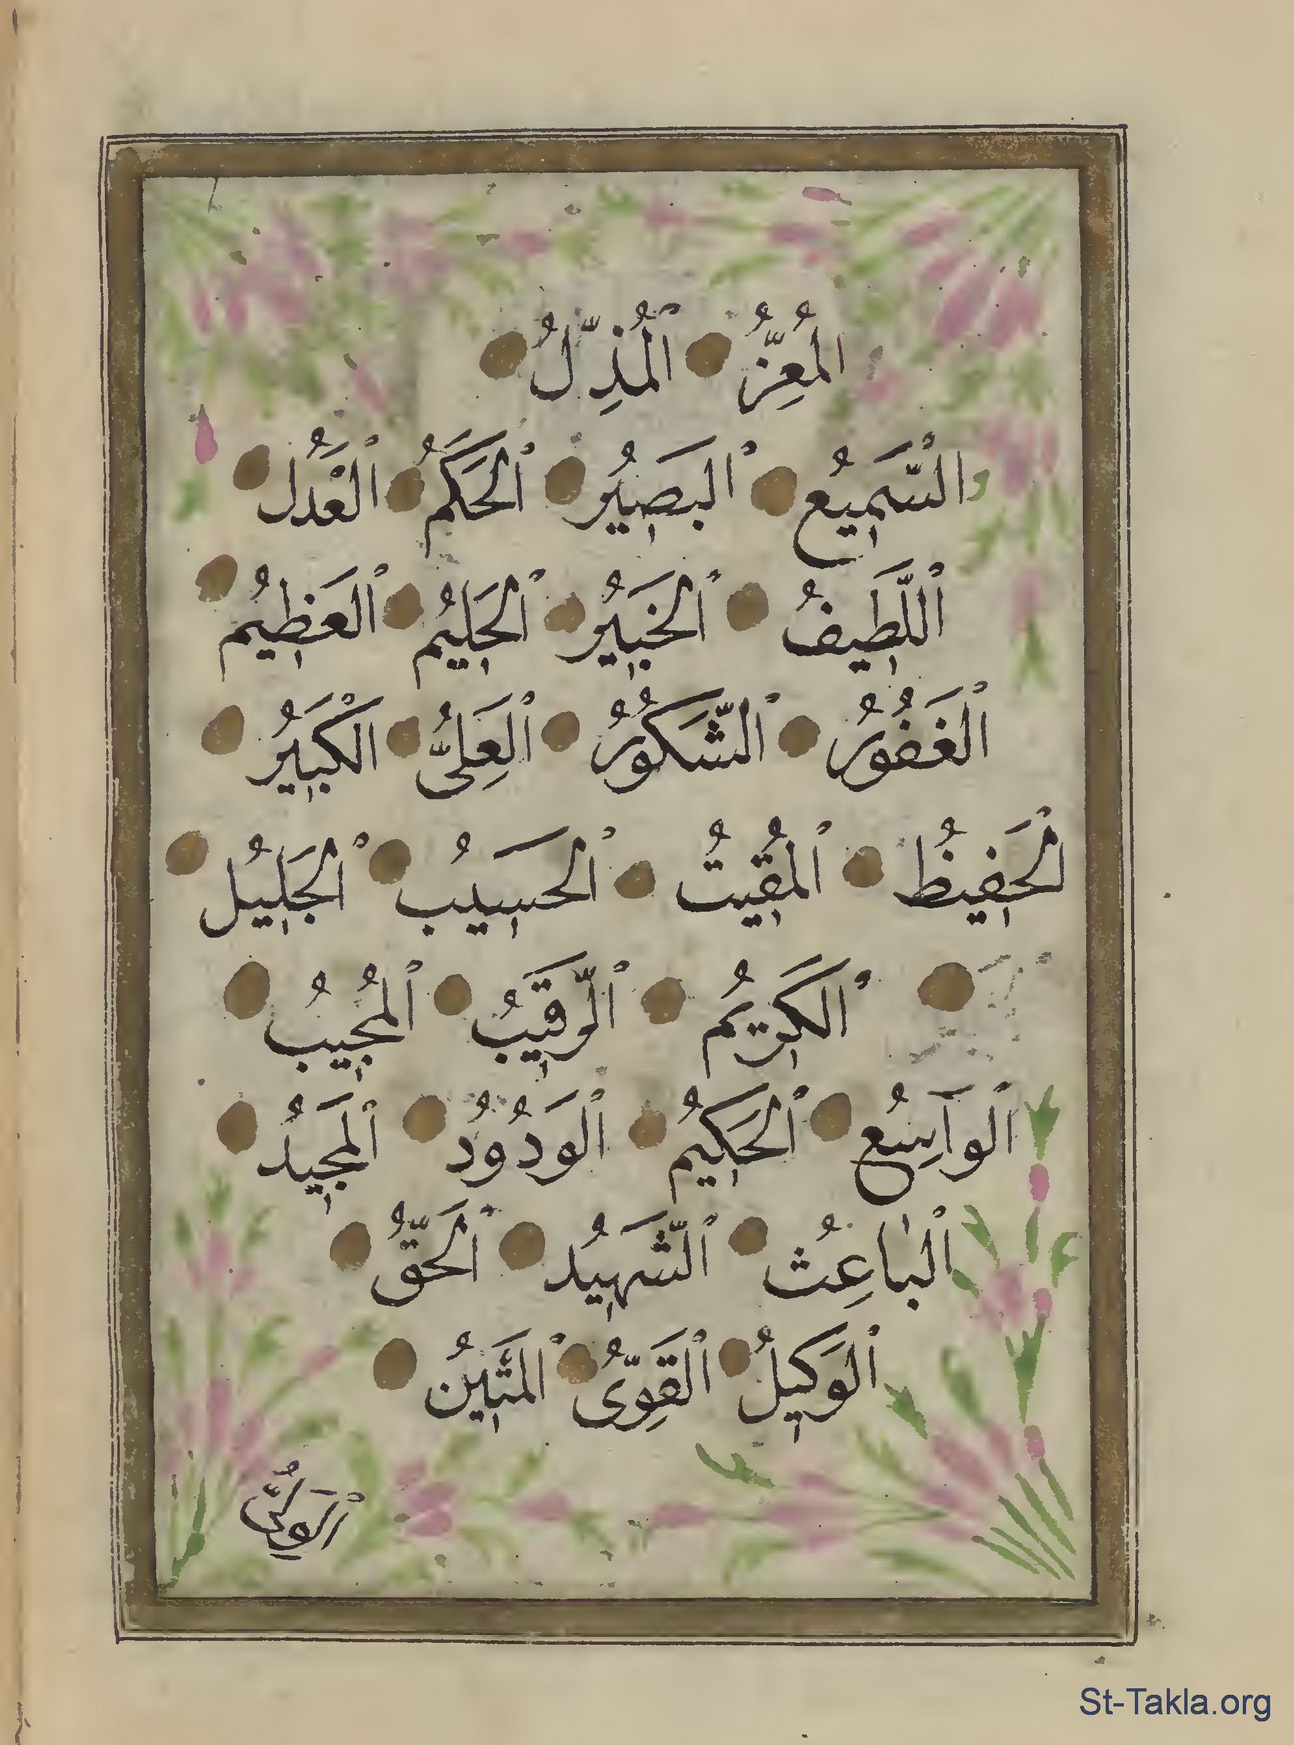 المُعِزُّ المُذِلُّ
السَّمِيعُ البَصِيرُ الحَكَمُ العَدْلُ
اللَّطِيفُ الخَبِيرُ الحَلِيمُ العَظِيمُ
الغَفُورُ الشَّكُورُ العَلِىُّ الكَبِيرُ
الحَفِيظُ المُقِيتُ الحَسِيبُ الجَلِيلُ
الكَرِيمُ الرَّقِيبُ المُجِيبُ
الوَاسِعُ الحَكِيمُ الوَدُودُ المَجِيدُ
البَاعِثُ الشَّهِيدُ الحَقُّ
الوَكِيلُ القَوِىُّ المَتِينُ
الوَلِىُّ
St-Takla.org